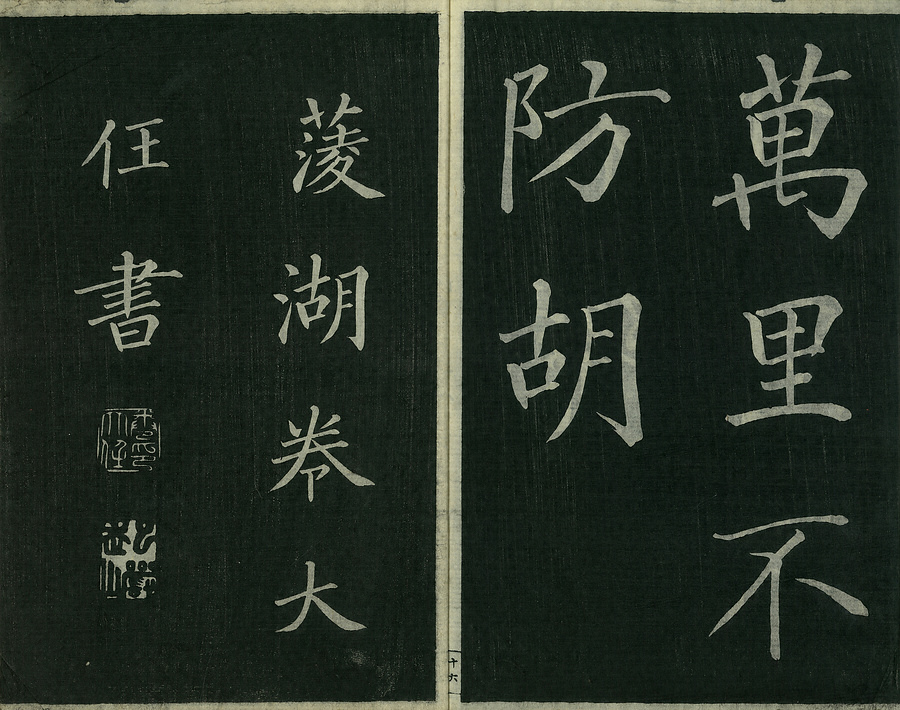 萬里不
防胡
蓤湖卷大
任書
十六